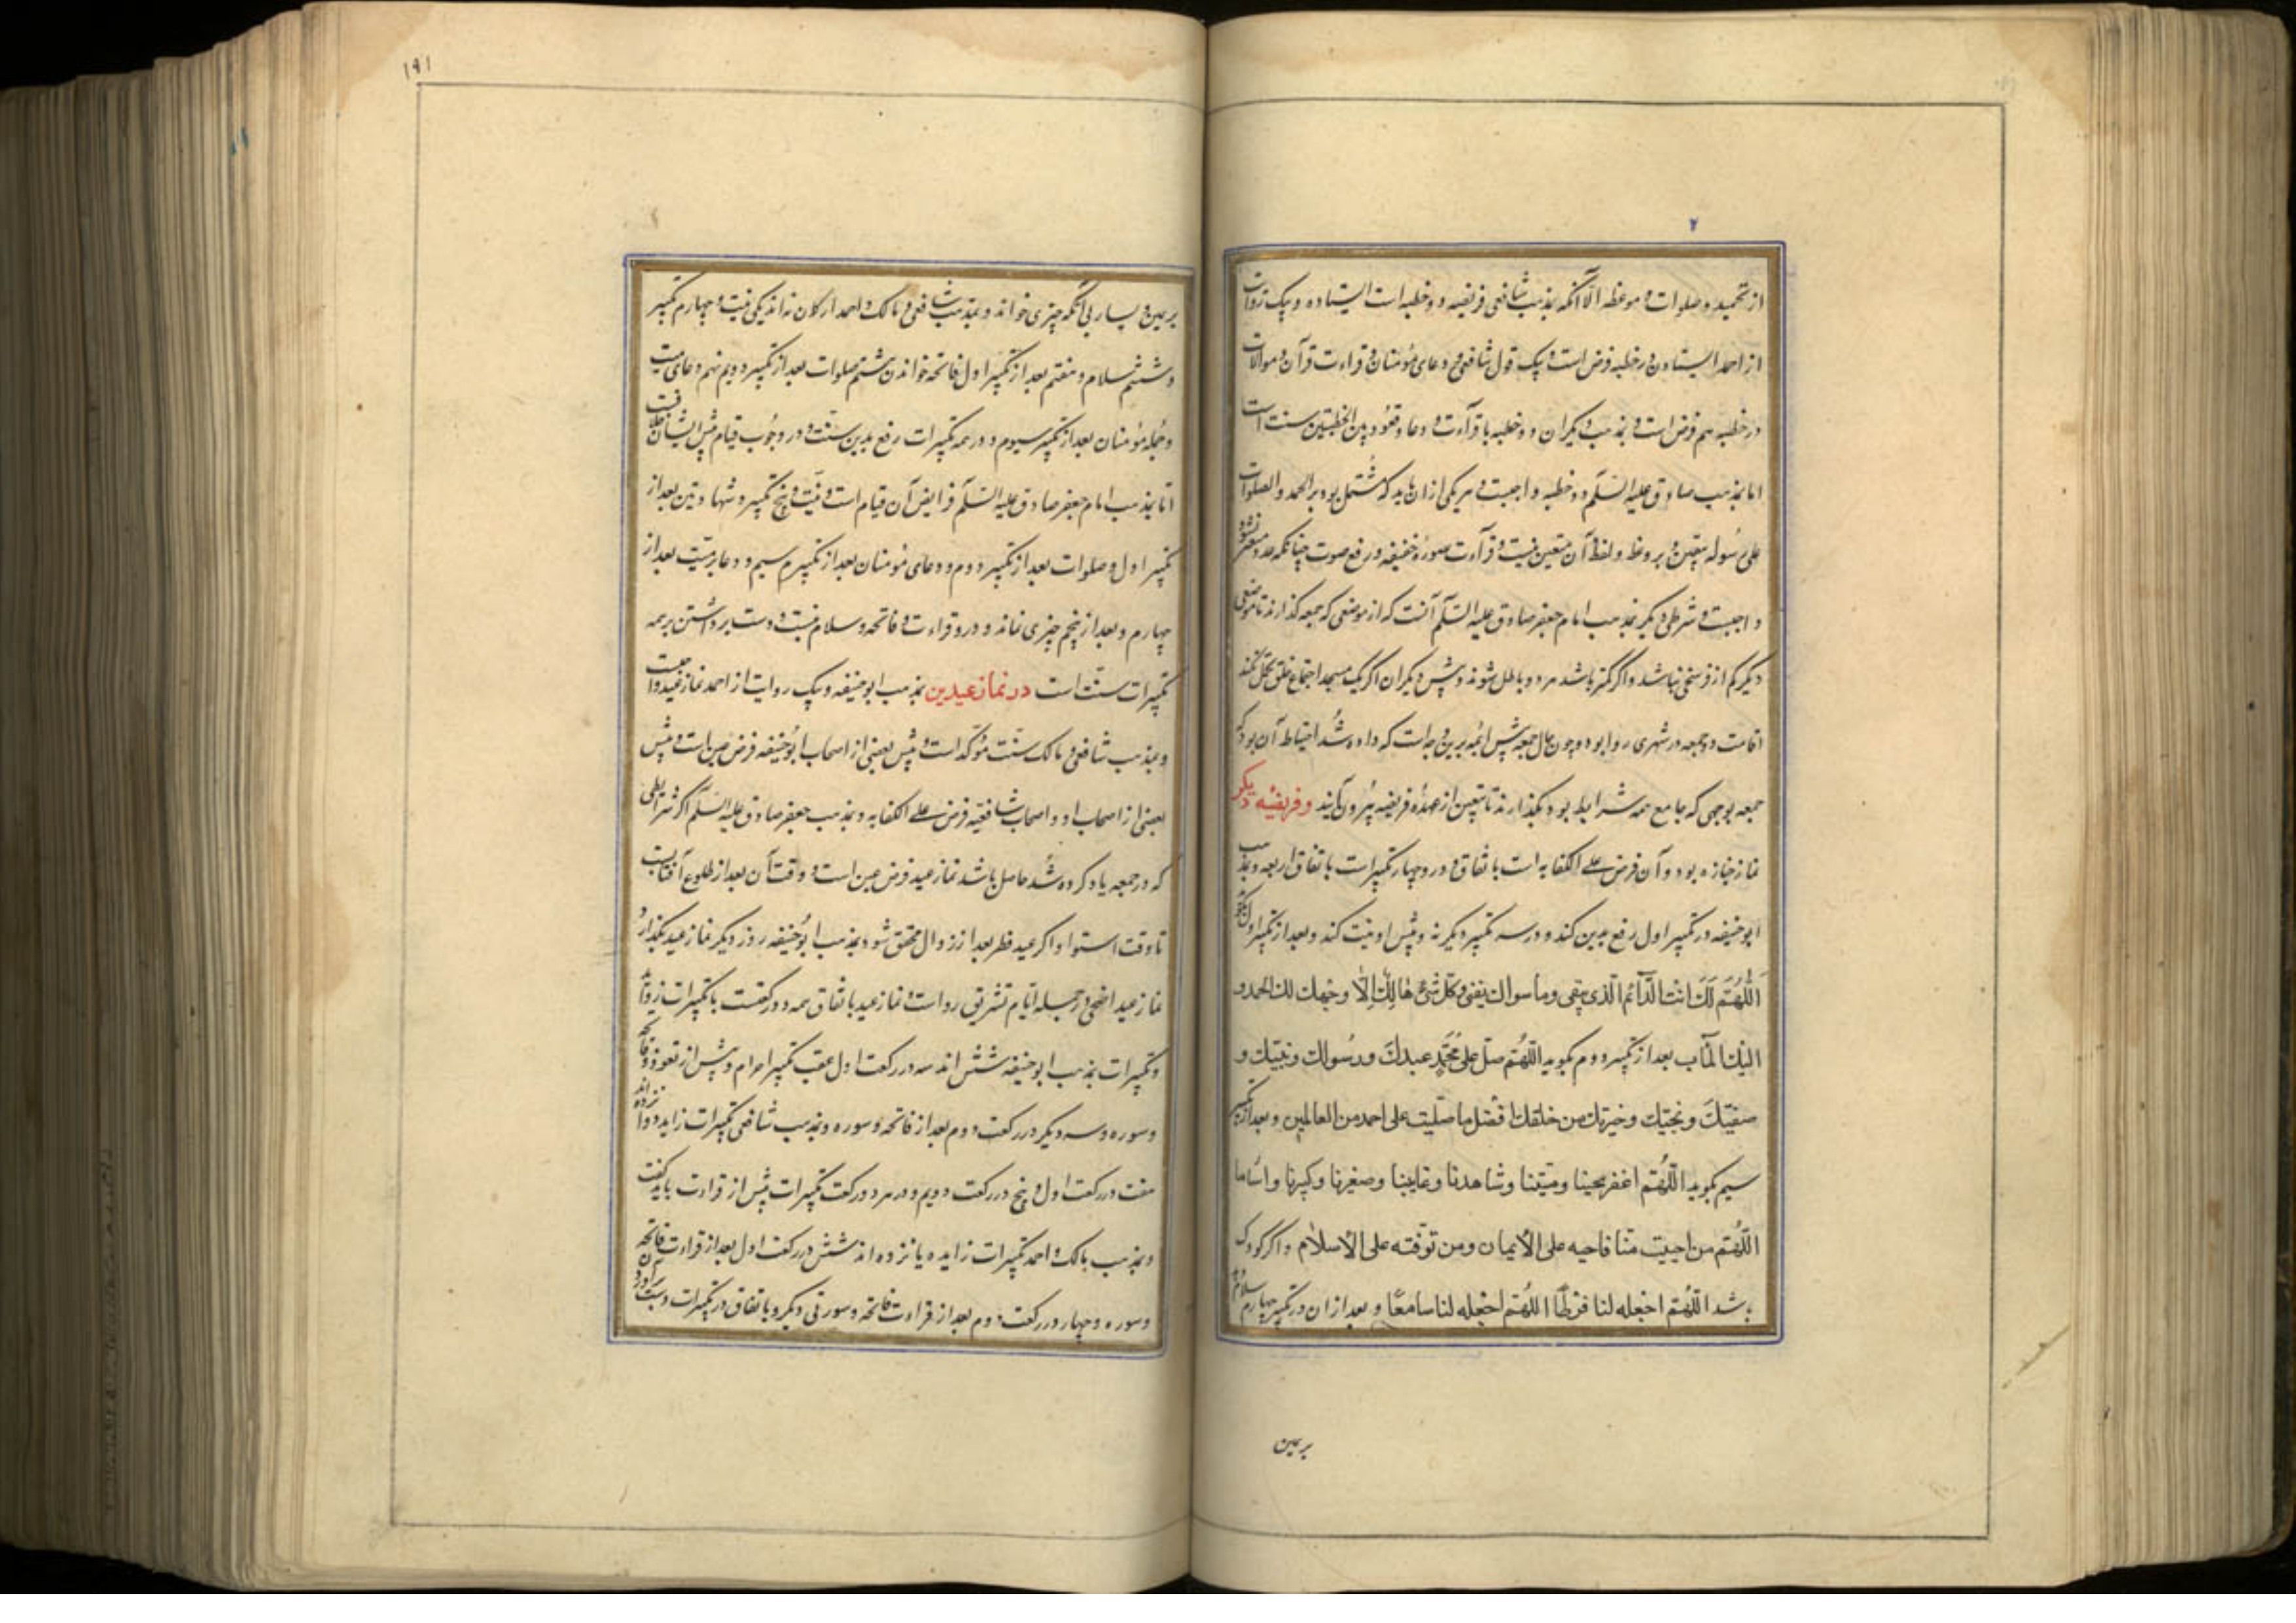 از تحمید و صلوات و موعظه الا آنکه بمذهب شافعی فریضه دو خطبه است ایستاده و بیک روات
از احمد ایستادن در خطبه فرض است و بیک قول شافعی و دعای مؤمنان و قراءت قرآن و موالات
در خطبه هم فرض است و بمذهب دیگران دو خطبه با قرآءت و دعا و قعود بین الخطبتین سنت است
اما بمذهب صادق علیه السّلم دو خطبه واجبست و هر یکی از ان باید که مُشتمل بود بر الحمد و الصلوات
علی رسُوله بتعیین و بر وعظ و لفظ آن متعین نیست و قرآءت صورة خفیفه و رفع صوت چنانکه عدد معتبر شنود
واجبست و شرطی دیگر بمذهب امام جعفر صادق علیه السّلم آنست که از موضعی که جمعه گذارند تا موضعی
دیگر کم از فرسخی نباشد و اگر کمتر باشد هر دو باطل شوند و پیش دیگران اگر یک مسجد اجتماع خلق تحمل نکند
اقامت دو جمعه در شهری روا بود و چون حال جمعه پیش ائمه برین وجه است که داده شُد احتیاط آن بود که
جمعه بوجهی که جامع همه شرایط بود بگذارند تا بتعیین از عهدۀ فریضه بیرون آیند و فریضۀ دیگر
نماز جنازه بود و آن فرض علی الکفایه است باتفاق و در و چهار تکبیرات باتفاق اربعه و بمذهب
ابو حنیفه در تکبیر اول رفع یدین کند و در سه تکبیر دیگر نه و پیش او نیت کند و بعد از تکبیر اول بگوید
اَللّهُمّ لَكَ انت الدّآئم الّذی یبقی وما سواك یفنی وکل شئ هالِكٌ اِلّا وجهك لك الحمد و
الیك المآب بعد از تکبیر دوم بگوید اللّهُمّ صلّ علی مُحَمّدٍ عبدكَ ورسُولك ونبیّك و
صفیّكَ ونجیّك وخیرتك من خلقك افضل ما صلّیت علی احمد من العالمین و بعد از تکبیر
سیم بگوید اللّهُمّ اغفر لحینا ومیّتنا وشاهدنا وغایبنا وصغیرنا وکبیرنا
اللّهُمّ من احییت منّا فاحیه علی الأیمان ومن توفّته علی الأسلام و اگر کودک
باشد اللّهُمّ اجعله لنا فرطًا اللّهُمّ اجعله لنا سامعًا و بعد از ان در تکبیر چهارم سلام
بر یمین
۱۹۱
بر یمین و یسار بی آنکه چیزی خواند و بمذهب شافعی و مالک و احمد ارکان نه اند یکی نیت و چهارم تکبیر
و ششم سلام و هفتم بعد از تکبیر اول فاتحه خواندن هشتم صلوات بعد از تکبیر دویم نهم دعای میت
و جمله مؤمنان بعد از تکبیر سیوم و در همه تکبیرات رفع یدین سنّت و در وجُوب قیام پیش ایشان خلافست
امّا بمذهب امام جعفر صادق علیه السّلم فرایض آن قیام است و نیّت و پنج تکبیر و شهادتین بعد از
تکبیر اول و صلوات بعد از تکبیر دوم و دعای مؤمنان بعد از تکبیر سیم و دعا بر میّت بعد از
چهارم و بعد از پنجم چیزی نماند و درو قراءت و فاتحه و سلام نیست و دست برداشتن بر همه
تکبیرات سنّت است در نماز عیدین بمذهب ابو حنیفه و بیک روایت از احمد نماز عید واجبست
و بمذهب شافعی و مالک سنّت مؤکّد است و پیش بعضی از اصحاب ابُوحنیفه فرض عین است و پیش
بعضی از اصحاب او و اصحاب شافعیّه فرض علی الکفایه و بمذهب جعفر صادق علیه السّلم اگر شرایطی
که در جمعه یاد کرده شُد حاصل باشد نماز عید فرض عین است و وقت آن بعد از طلوع آفتابست
تا وقت استوا و اگر عید فطر بعد از زوال محقق شود بمذهب ابُوحنیفه روز دیگر نماز عید بگذارد
نماز عید اضحی در جمله ایّام تشریق روا است و نماز عید باتفاق همه دو رکعتست با تکبیرات زواید
و تکبیرات بمذهب ابو حنیفه شش اند سه در رکعت اول عقب تکبیر احرام و پیش از تعوذ و فاتحه
و سوره و سه دیگر در رکعت دوم بعد از فاتحه و سوره و بمذهب شافعی تکبیرات زاید دوازده اند
هفت در رکعت اول و پنج در رکعت دویم و در هر دو رکعت تکبیرات پیش از قراءت باید گفت
و بمذهب مالک و احمد تکبیرات زایده یانزده اند شش در رکعت اول بعد از قراءت فاتحه
و سوره و چهار در رکعت دوم بعد از قراءت فاتحه و سورتی دیگر و باتفاق در تکبیرات دست